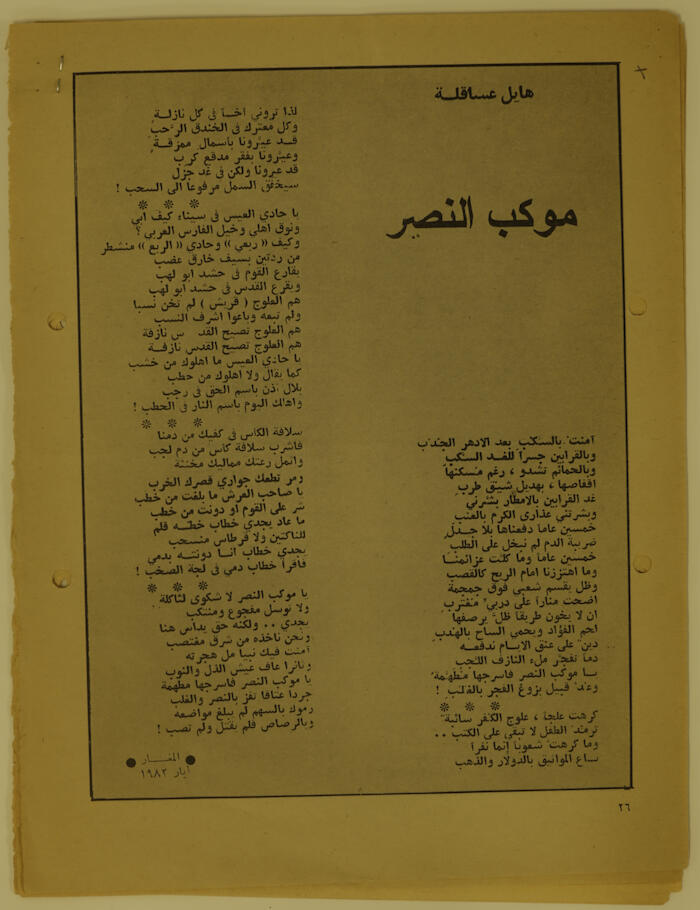 هايل عساقلة
موكب النصر
آمنت بالسكب بعد الادهر الجدب
وبالقرابين جسرا للغد السكب
وبالحمائم تشدو ، رغم مسكنها
اقفاصها ، بهديل شيق طرب
غد القرابين بالامطار بشرني
وبشرتني عذارى الكرم بالعنب
خمسين عاما دفعناها بلا جدل
ضريبة الدم لم نبخل على الطلب
خمسين عاما وما كلت عزائمنا
وما اهتززنا امام الريح كالقصب
وظل يقسم شعبي فوق جمجمة
اضحت منارا على دربي مغترب
ان لا يخون طريقا ظل يرصفها
لحم الفؤاد ويحمي الساح بالهدب
دين على عنق الايام ندفعه
دما تفجر ملء النازف اللجب
يا موكب النصر فاسرجها مطهمة
وعد قبيل بزوغ الفجر بالغلب !
* * *
كرهت علجا ، علوج الكفر سائبة
ترمد الطفل لا تبقي على الكتب ..
وما كرهت شعوبا انما نفرا
باع المواثيق بالدولار والذهب
لذا تروني اخا في كل نازلة
وكل معترك في الخندق الرحب
قد عيرونا باسمال ممزقة
وعيرونا بفقر مدقع كرب
قد عيرونا ولكن في غد جزل
سيخفق السمل مرفوعا الى السحب !
* * *
يا حادي العيس في سيناء كيف ابي
ونوق اهلي وخيل الفارس العربي ؟
وكيف (( ربعي )) وحادي (( الربع )) منشطر
من ردتين بسيف خارق عضب
يقارع القوم في حشد ابو لهب
ويقرع القدس في حشد ابو لهب
هم العلوج ( قريش ) لم تخن نسبا
ولم تبعه وباعوا اشرف النسب
هم العلوج تصيح القد س نازفة
هم العلوج تصيح القدس نازفة
يا حادي العيس ما اهلوك من خشب
كما يقال ولا اهلوك من حطب
بلال أذن باسم الحق في رجب
واهلك اليوم باسم النار في الحطب !
* * *
سلافة الكاس في كفيك من دمنا
فاشرب سلافة كاس من دم لجب
وانمل رعتك مماليك مخنثة
ومر تطعك جواري قصرك الخرب
يا صاحب العرش ما بلغت من خطب
شر على القوم او دونت من خطب
ما عاد يجدي خطاب خطه قلم
للناكثين ولا قرطاس منسحب
يجدي خطاب انا دونته بدمي
فاقرأ خطاب دمي في لجة الصخب !
* * *
يا موكب النصر لا شكوى لثاكلة
ولا توسل مفجوع ومنتكب
يجدي .. ولكنه حق يداس هنا
ونحن ناخذه من شرق مغتصب
آمنت فيك نبيا مل هجرته
وثائرا عاف عيش الذل والنوب
يا موكب النصر فاسرجها مطهمة
جردا عتاقا تفز بالنصر والغلب
رموك بالسهم لم يبلغ مواضعه
وبالرصاص فلم يقتل ولم تصب !
● المغار ●
أيار ١٩٨٢
٢٦